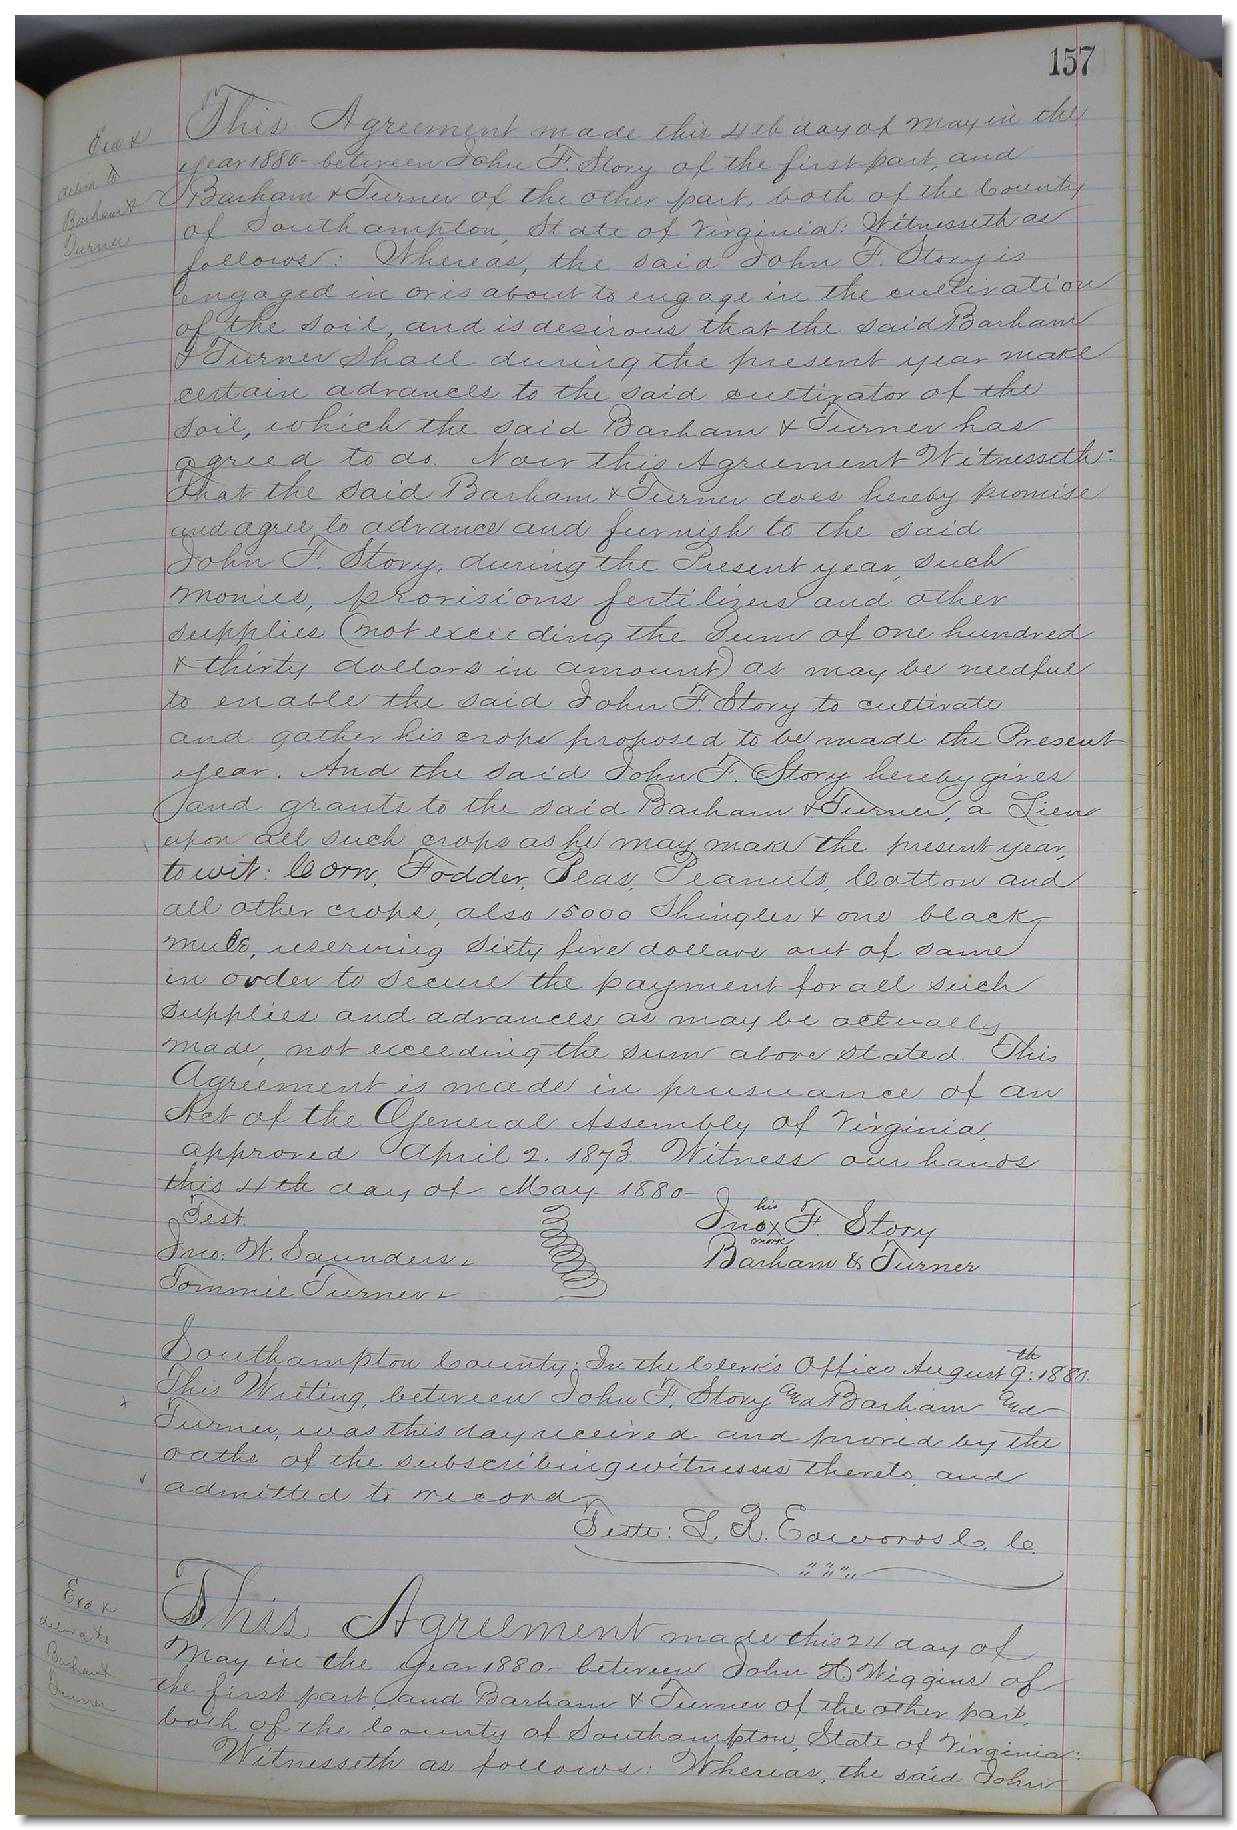 157
Exa &
deliv to
Barham &
Turner
This Agreement made this 4th day of May in the
year 1880 - between John F. Story of the first part, and
Barham & Turner of the other part, both of the County
of Southampton, State of Virginia: Witnesseth as
follows: Whereas, the said John F. Story is
engaged in or is about to engage in the cultivation
of the soil, and is desirous that the said Barham
& Turner shall during the present year make
certain advances to the said cultivator of the
soil, which the said Barham & Turner has
agreed to do. Now this Agreement Witnesseth:
That the said Barham & Turner does hereby promise
and agree to advance and furnish to the said
John F. Story, during the Present year, such
monies, provisions fertilizers and other
supplies (not exceeding the Sum of one hundred
& thirty dollars in amount) as may be needful
to enable the said John F. Story to cultivate
and gather his crops proposed to be made the Present
year. And the said John F. Story hereby gives
and grants to the said Barham & Turner, a Lien
upon all such crops as he may make the present year,
to wit: Corn, Fodder, Peas, Peanuts, Cotton and
all other crops, also 15000 Shingles & one black
mule, reserving Sixty five dollars out of same
in order to secure the payment for all such
supplies and advances as may be actually
made, not exceeding the sum above stated. This
Agreement is made in prusuance of an
Act of the General Assembly of Virginia,
approved April 2. 1873. Witness our hands
this 4th day of May 1880-
Test.
his
Jno. x F. Story
mark
Jno. W. Saunders,
Barham & Turner
Tommie Turner
Southampton County: In the Clerk's Office August 9th: 1880.
This Writing, between John F. Story and Barham and
Turner, was this day received and proved by the
oaths of the subscribing witnesses thereto, and
admitted to record
Teste: L. R. Edwards C. C.
Exa &
deliv to
Barham &
Turner
This Agreement made this 24 day of
May in the year 1880 - between John Wiggins of
the first part, and Barham & Turner of the other part,
both of the County of Southampton, State of Virginia:
Witnesseth as follows: Whereas, the said John